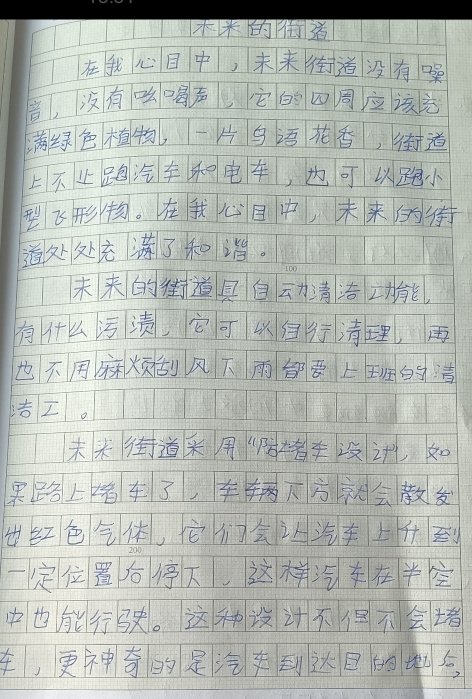 未来的街道
在我心目中，未来街道没有噪
音，没有吆喝声，它的四周应该充
满绿色植物，一片鸟语花香，街道
上不止跑汽车和电车，也可以跑小
型飞形物。在我心目中，未来的街
道处处充满了和谐。
100
未来的街道具自动清洁功能，
有什么污渍，它可以自行清理，再
也不用麻烦刮风下雨都要上班的清
洁工。
未来街道采用“防堵车设计”，如
果路上堵车了，车辆下方就会散发
出红色气体，它们会让汽车上升到
200
一定位置后停下，这样汽车在半空
中也能行驶。这种设计不但不会堵
车，更神奇的是汽车到达目的地后，